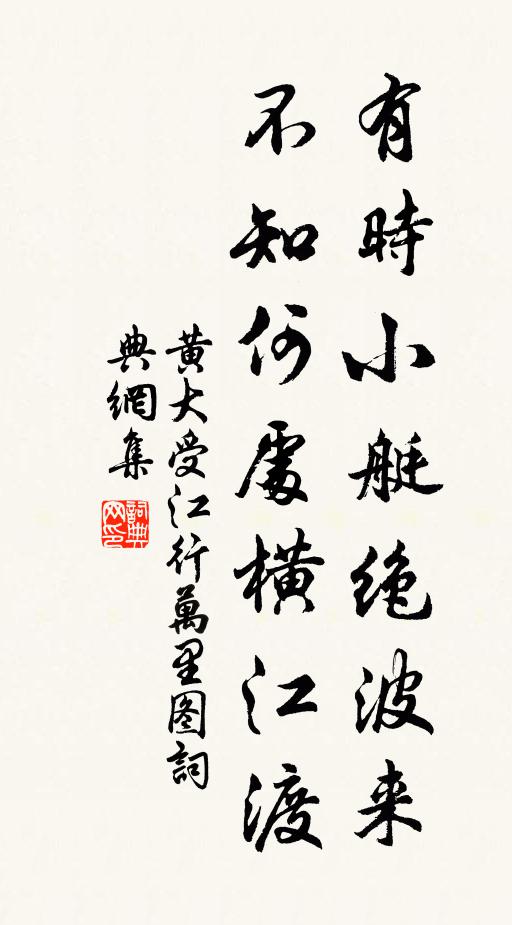 有時小艇绝波来
不知何處横江渡
黄大受江行萬里图詞
典網集
詞典
网印